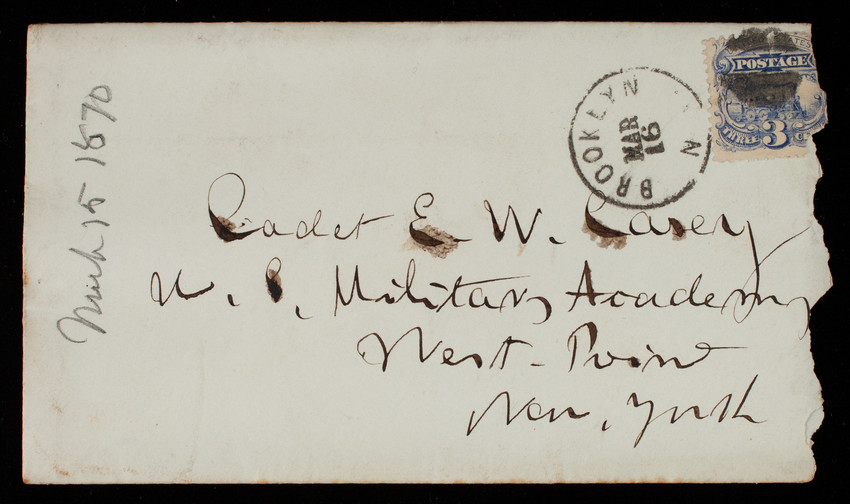 March 15 1870
BROOKLYN N
MAR
16
POSTAGE
THREE 3 C
Cadet E. W. Casey
U. S. Military Academy
West-Point
New, York